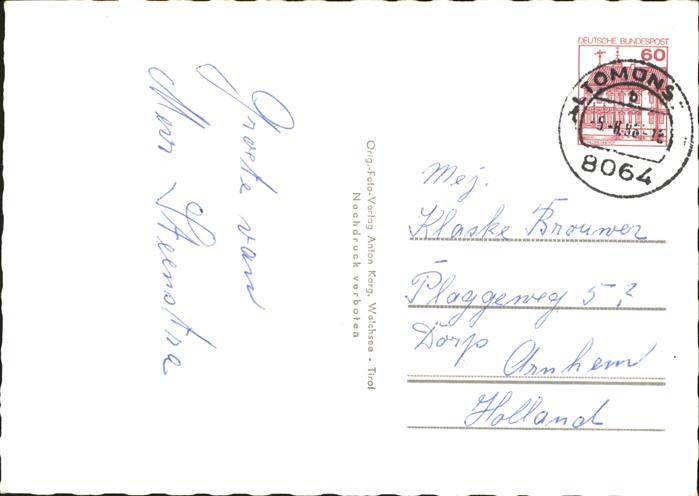 Groete van
Mevr Steenstra
Orig.-Foto-Verlag Anton Karg, Walchsee - Tirol
Nachdruck verboten
DEUTSCHE BUNDESPOST
60
ALTOMÜNS
b
8064
Mej.
Klaske Brouwer
Plaggeweg 5?
Dorp Arnhem
Holland